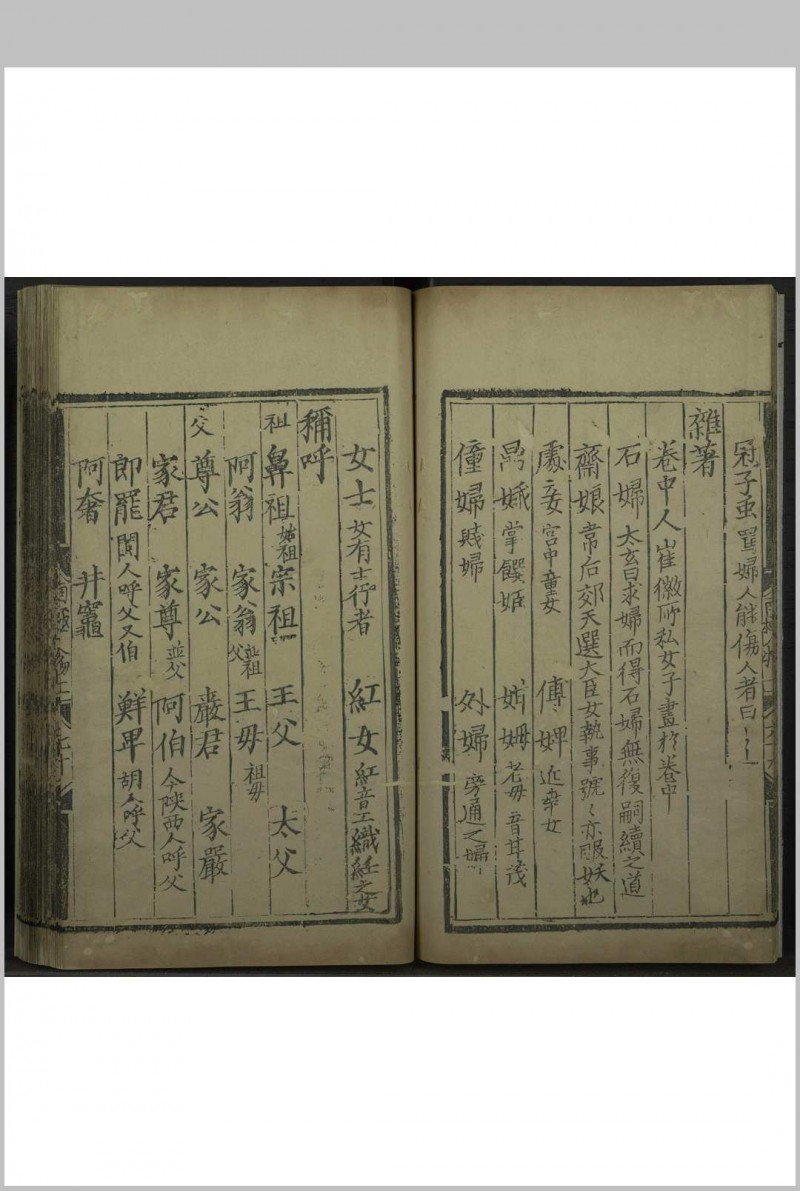 冠子虫 罵婦人能傷人者曰
雜著
卷中人 崔徽所私女子畫於卷中
石婦 太玄曰求婦而得石婦無復嗣續之道
齋娘 常后郊天選大臣女執事號〻亦服妖也
處妾 宮中童女 傅婢 近幸女
掌饌姬 老毋音甘茂
僮婦 賤婦 外婦 旁通之婦
女士 女有士行者 紅女 紅音工織紝之女
稱呼
祖 鼻祖 始祖 宗祖 王父 太父
阿翁 家翁 並祖父 王毋 祖毋
父 尊公 家公 嚴君 家嚴
家君 家尊 並父 阿伯 今陝西人呼父
郎罷 閩人呼父又伯 鮮卑 胡人呼父
阿奢 井竈